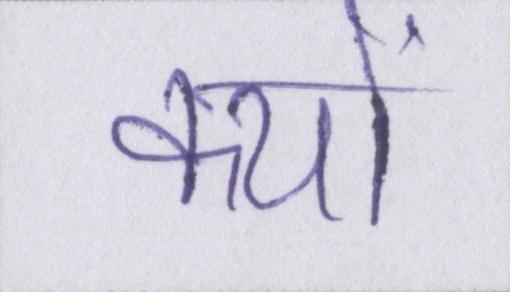 क्यों